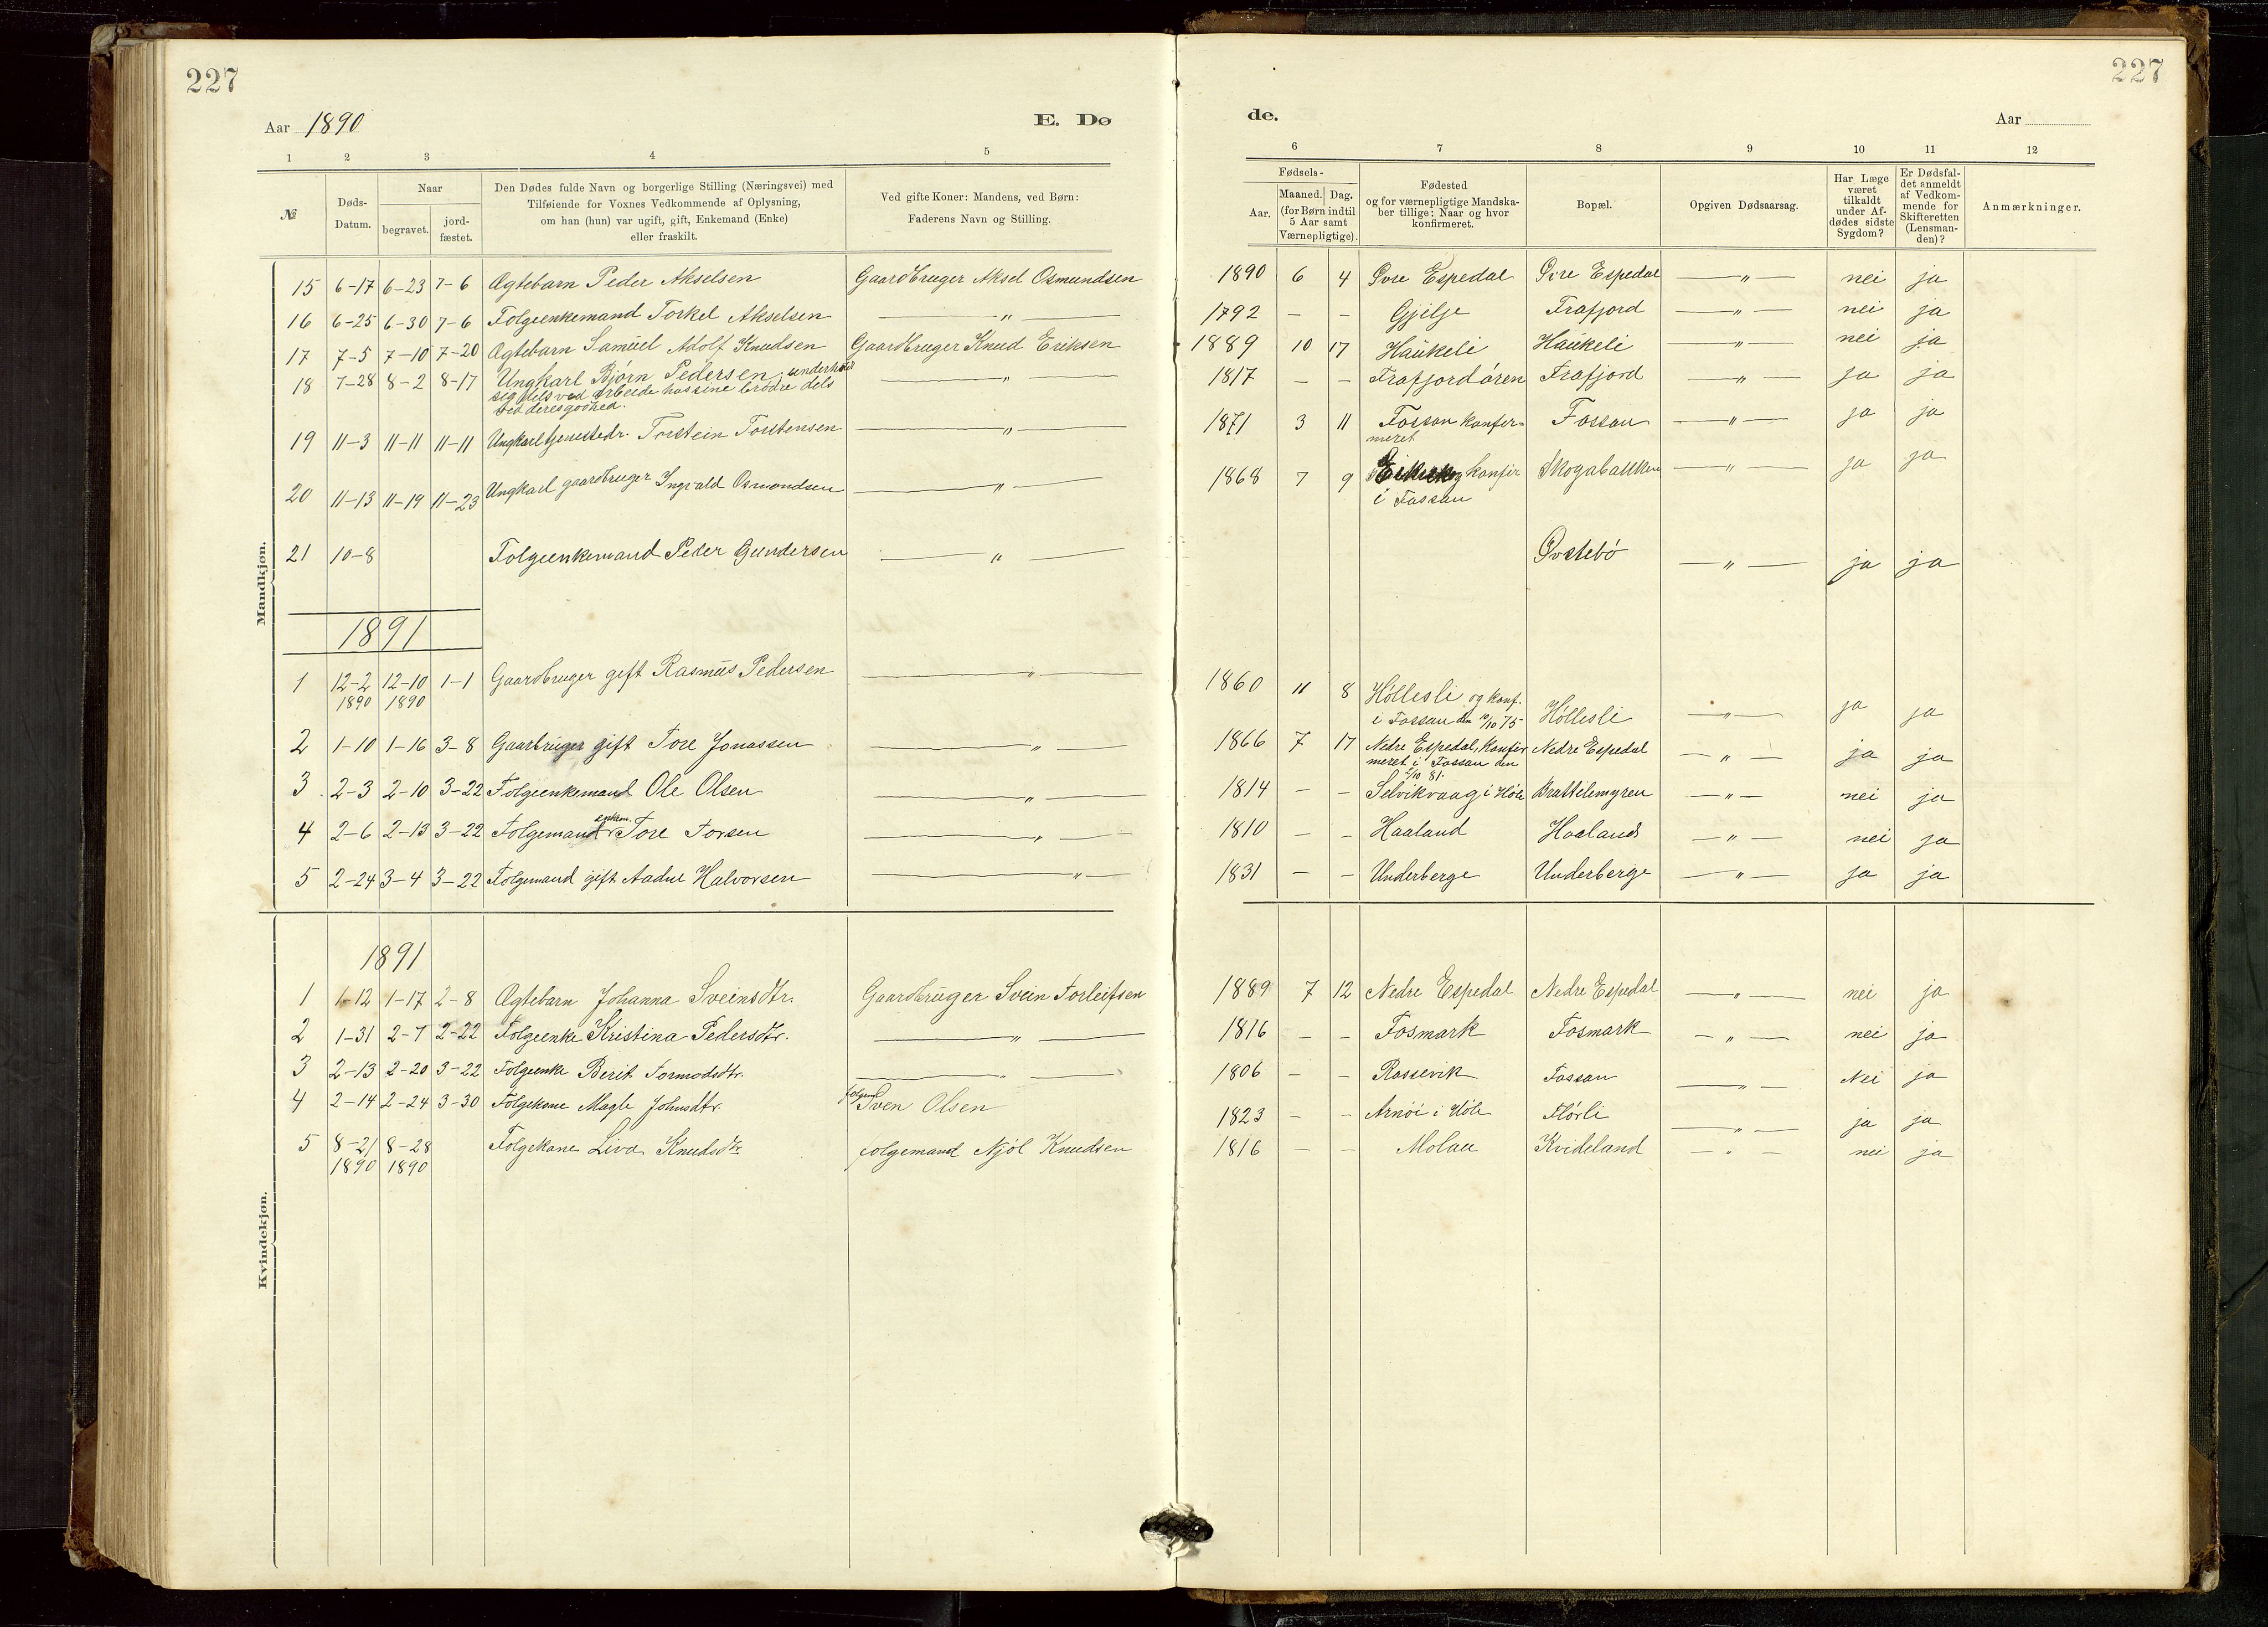 227
227
Aar 1890
E. Dø
de.
Aar
1 2 3 4 5 6 7 8 9 10 11 12
№
Døds-Datum.
Naar
begravet.
jord-fæstet.
Den Dødes fulde Navn og borgerlige Stilling (Næringsvei) med
Tilføiende for Voxnes Vedkommende af Oplysning,
om han (hun) var ugift, gift, Enkemand (Enke)
eller fraskilt.
Ved gifte Koner: Mandens, ved Børn:
Faderens Navn og Stilling.
Fødsels-
Aar.
Maaned. Dag.
(for Børn indtil
5 Aar samt
Værnepligtige).
Fødested
og for værnepligtige Mandska-
ber tillige: Naar og hvor
konfirmeret.
Bopæl.
Opgiven Dødsaarsag.
Har Læge
været
tilkaldt
under Af-
dødes sidste
Sygdom?
Er Dødsfal-
det anmeldt
af Vedkom-
mende for
Skifteretten
(Lensman-
den)?
Anmærkninger.
Mandkjøn.
15 6-17 6-23 7-6 Ægtebarn Peder Akselsen Gaardbruger Aksel Osmundsen 1890 6 4 Øvre Espedal Øvre Espedal — " — nei ja
16 6-25 6-30 7-6 Folgeenkemand Torkel Akselsen — " — 1792 - - Gjilje Frafjord — " — nei ja
17 7-5 7-10 7-20 Ægtebarn Samuel Adolf Knudsen Gaardbruger Knud Eriksen 1889 10 17 Haukeli Haukeli — " — nei ja
18 7-28 8-2 8-17 Ungkarl Bjørn Pedersen, underholdt — " — 1817 - - Frafjordøren Frafjord — " — ja ja
sig dels ved arbeide hos sine brødre dels
ved deres godhed.
19 11-3 11-11 11-11 Ungkarl tjenestedr. Torstein Torstensen — " — 1871 3 11 Fossan konfir= Fossan — " — ja ja
meret
20 11-13 11-19 11-23 Ungkarl gaardbruger Ingvald Osmondsen — " — 1868 7 9 og konfir Skogabakken — " — ja ja
i Fossan
21 10-8 Folgeenkemand Peder Gundersen — " — Øvstebø — " — ja ja
1891
1 12-2 12-10 1-1 Gaardbruger gift Rasmus Pedersen — " — 1860 11 8 Høllesli og konf. Høllesli — " — ja ja
1890 1890 i Fossan den 10/10 75
2 1-10 1-16 3-8 Gaarbruger gift Tore Jonassen — " — 1866 7 17 Nedre Espedal, Konfir Nedre Espedal — " — ja ja
meret i Fossan den
2/10 81.
3 2-3 2-10 3-22 Folgeenkemand Ole Olsen — " — 1814 - - Selvikvaag i Høle Brattelimyren — " — nei ja
4 2-6 2-13 3-22 Folgemand enkem. Tore Torsen — " — 1810 - - Haaland Haaland — " — nei ja
5 2-24 3-4 3-22 Folgemand gift Aadne Halvorsen — " — 1831 - - Underberge Underberge — " — ja ja
Kvindekjøn.
1891
1 1-12 1-17 2-8 Ægtebarn Johanna Sveinsdtr. Gaardbruger Svein Torleifsen 1889 7 12 Nedre Espedal Nedre Espedal — " — nei ja
2 1-31 2-7 2-22 Folgeenke Kristina Pedersdtr. — " — 1816 - - Fosmark Fosmark — " — nei ja
3 2-13 2-20 3-22 Folgeenke Berit Tormodsdtr. — " — 1806 - - Rossevik Fossan — " — Nei ja
4 2-14 2-24 3-30 Folgekone Magle Johnsdtr. folgem Sven Olsen 1823 - - Arnøi i Høle Flørli — " — ja ja
5 8-21 8-28 Folgekone Liva Knudsdtr. folgemand Njøl Knudsen 1816 - - Molau Kvideland — " — nei ja
1890 1890